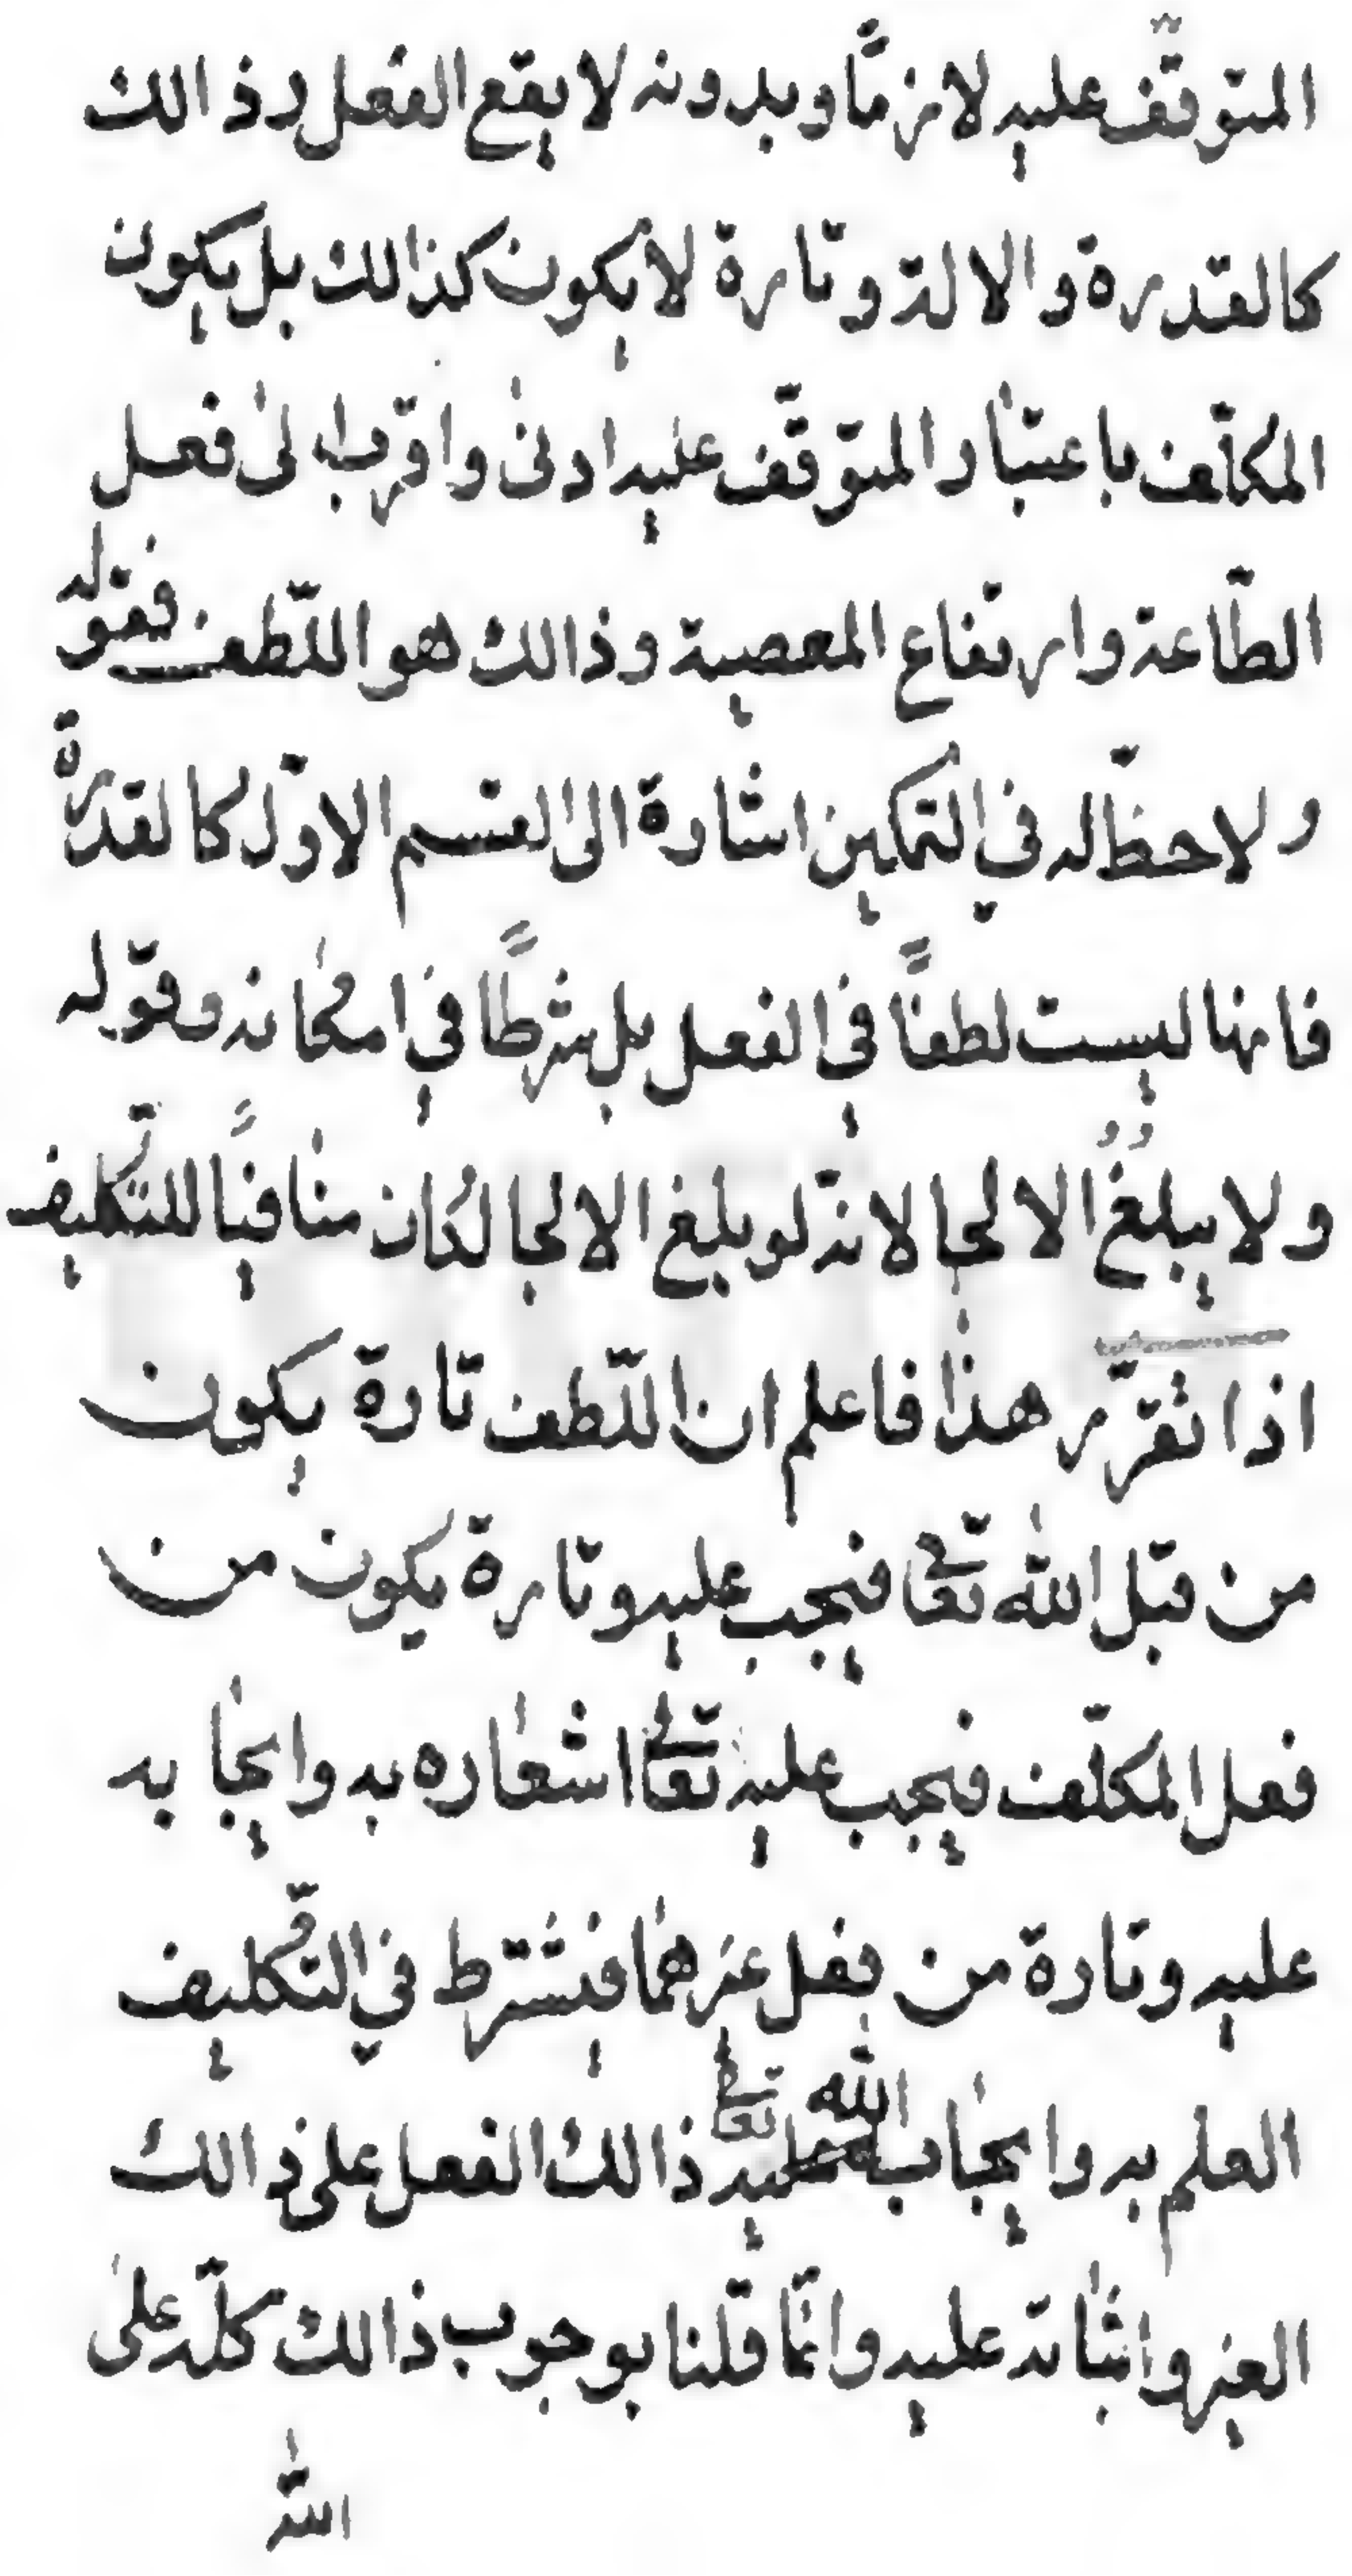 المتوقّف عليه لازمًا وبدونه لا يقع الفعل وذالك
كالقدرة والالة وتارة لا يكون كذالك بل يكون
المكلّف باعتبار المتوقّف عليه ادنىٰ واقرب الىٰ فعل
الطّاعة وارتفاع المعصية وذالك هو اللّطف فقوله
ولا حظّ له في التمكين اشارة الىٰ القسم الاوّل كالقدرة
فانها ليست لطفًا في الفعل بل شرطًا في امكانه وقوله
ولا يبلغُ الالجا لانّه لو بلغ الالجا لكان منافيًا للتّكليف
اذا تقرّر هذا فاعلم ان اللّطف تارة يكون
من قبل اللّٰه تعالى فيجب عليه وتارة يكون من
فعل المكلّف فيجب عليه تعالى اشعاره به وايجابه
عليه وتارة من فعل غيرهما فيشترط في التّكليف
العلم به وايجاب اللّٰه تعالى ذالك الفعل على ذالك
الغير واثباته عليه وانّما قلنا بوجوب ذالك كلّه علىٰ
اللّٰه